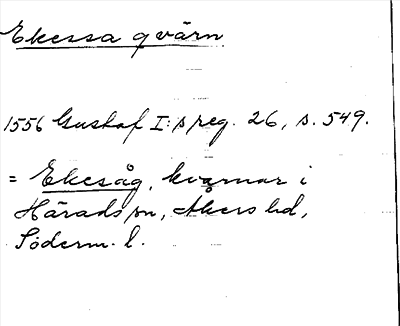 Ekessa qvärn
1556 Gustaf I:s reg. 26, s. 549.
= Ekesåg, kvarnar i
Härads sn, Åkers hd,
Söderm. l.